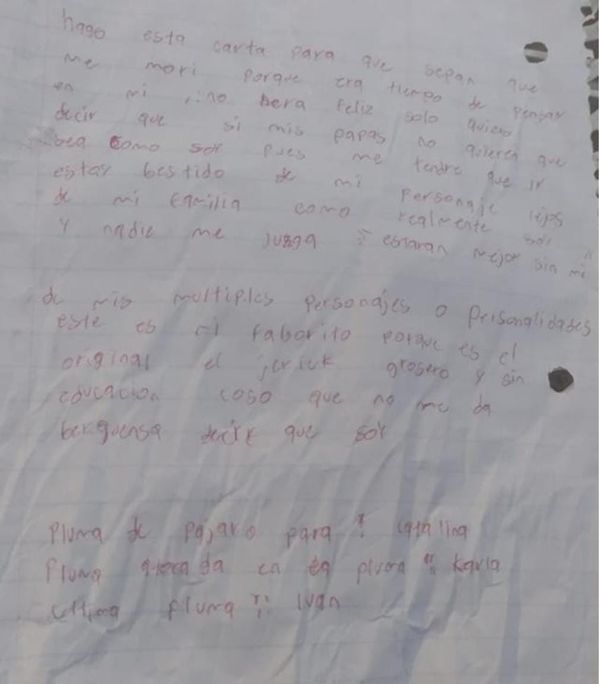 hago esta carta para que sepan que
me mori porque era tiempo de pensar
en mi ,: no hera feliz solo quiero
decir que si mis papas no quieren que
sea como soy pues me tendre que ir
estar bestido de mi personaje lejos
de mi familia como realmente soy
y nadie me juzga :: estaran mejor sin mi
de mis multiples personajes o prisonalidades
este es mi faborito porque es el
original el jerick grosero y sin
educacion coso que no me da
berguensa decir que soy
Pluma de pajaro para : catalina
Pluma en la pluma :: Karla
ultima pluma :: Ivan